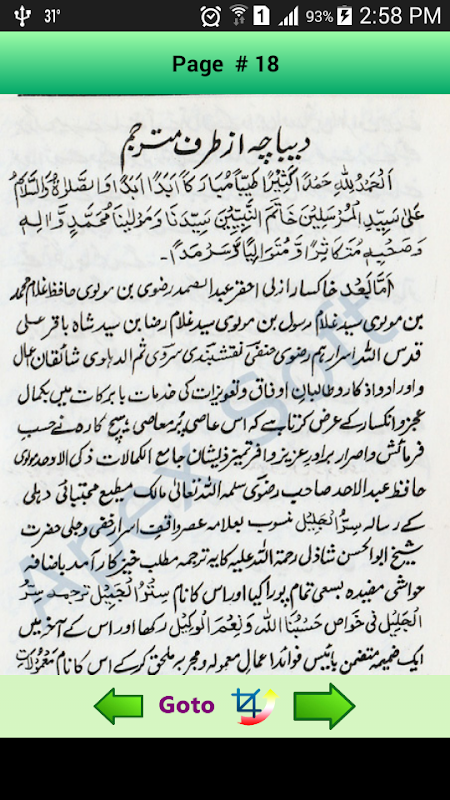 31°
93%
2:58 PM
Page # 18
دیباچہ از طرف مترجم
اَلْحَمْدُ لِلّٰهِ حَمْدًا كَثِيْرًا طَيِّبًا مُبَارَكًا اَبَدًا اَبَدًا وَالصَّلٰوةُ وَالسَّلَامُ
عَلٰى سَيِّدِ الْمُرْسَلِيْنَ خَاتَمِ النَّبِيِّيْنَ سَيِّدِنَا وَمَوْلٰينَا مُحَمَّدٍ وَّاٰلِهٖ
وَصَحْبِهٖ مُتَكَاثِرًا وَّمُتَوَالِيًا وَّسَرْمَدًا۔
اَمَّا بَعْدُ خاکسار ازلی احقر عبد الصمد رضوی بن مولوی حافظ غلام محمد
بن مولوی سید غلام رسول بن مولوی سید غلام رضا بن سید شاہ باقر علی
قدس اللہ اسرارہم رضوی حنفی نقشبندی سروی ثم الدہلوی شائقان اعمال
و اوراد و اذکار و طالبان اوفاق و تعویزات کی خدمات بابرکات میں بکمال
عجز و انکسار کے عرض کرتا ہے کہ اس عاصی پُر معاصی ہیچ کارہ نے حسب
فرمائش و اصرار برادر عزیز و افر تمیز ذیشان جامع الکمالات ذکی الاوحد مولوی
حافظ عبد الاحد صاحب رضوی سلمہ اللہ تعالیٰ مالک مطبع مجتبائی دہلی
کے رسالہ سِرُّ الْجَلِيْل منسوب بعلامہ عصر واقف اسرار خفی و جلی حضرت
شیخ ابو الحسن شاذلی رحمۃ اللہ علیہ کا یہ ترجمہ مطلب خیز کار آمد باضافہ
حواشی مفیدہ بسعی تمام پورا کیا اور اس کا نام سِتْرُ الْجَمِيْل ترجمہ سِرُّ
الْجَلِيْل فی خواص حَسْبُنَا اللهُ وَنِعْمَ الْوَكِيْل رکھا اور اس کے آخر میں
ایک ضمیمہ متضمن بائیس فوائد اعمال معمولہ و مجربہ ملحق کر کے اس کا نام معمولات
Apex Soft
Goto